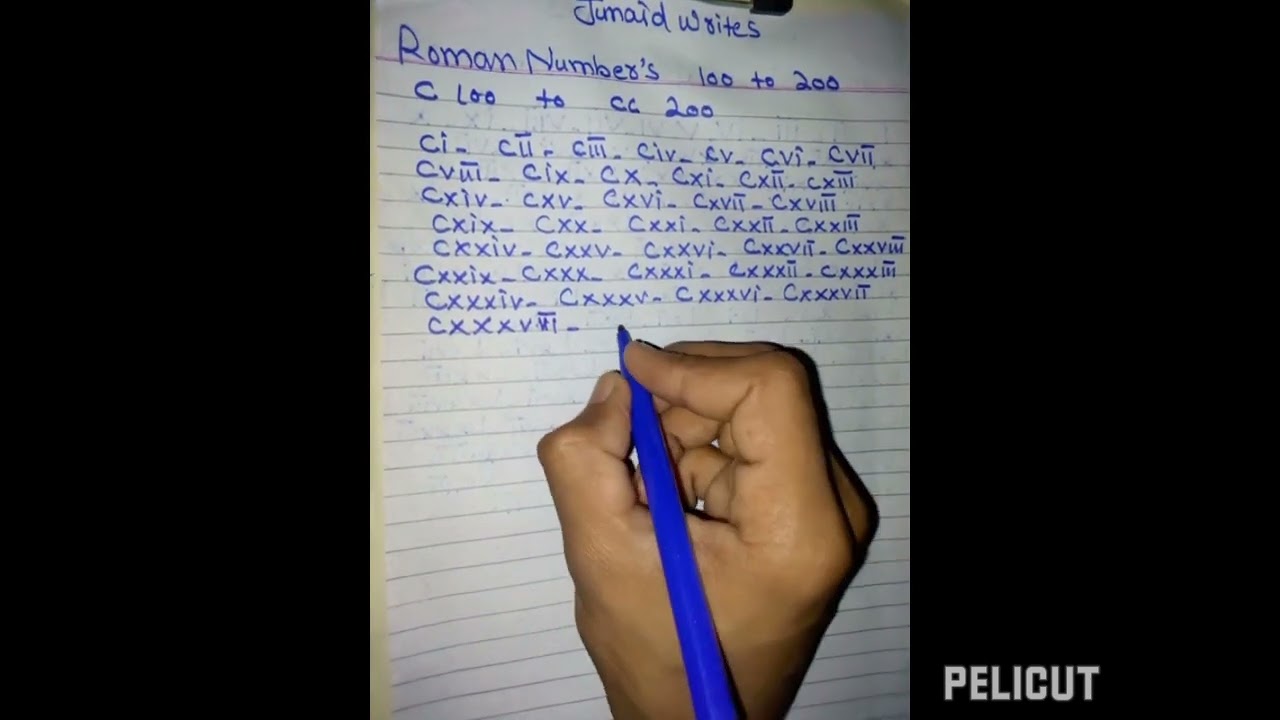 Junaid Writes
Roman Number's 100 to 200
C 100 to CC 200
Ci- CII- CIII- Civ- Cv- Cvi- CvII
CvIII- Cix- Cx- Cxi- CxII- CxIII
Cxiv- Cxv- Cxvi- CxvII- CxvIII
Cxix- Cxx- Cxxi- CxxII- CxxIII
Cxxiv- Cxxv- Cxxvi- CxxvII- CxxvIII
Cxxix- Cxxx- Cxxxi- CxxxII- CxxxIII
Cxxxiv- Cxxxv- Cxxxvi- CxxxvII
PELICUT